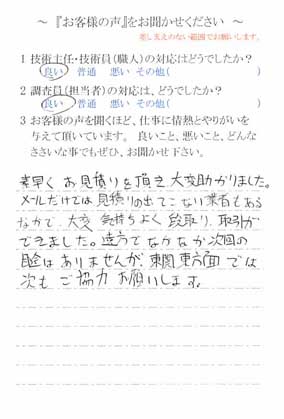 ～ 『お客様の声』をお聞かせください ～
差し支えのない範囲でお願いします。
1 技術主任・技術員(職人)の対応はどうでしたか？
良い 普通 悪い その他( )
2 調査員(担当者)の対応は、どうでしたか？
良い 普通 悪い その他( )
3 お客様の声を聞くほど、仕事に情熱とやりがいを
与えて頂いています。 良いこと、悪いこと、どんな
ささいな事でもぜひ、お聞かせ下さい。
素早く お見積りを頂き 大変助かりました。
メールだけでは 見積りの出てこない業者もある
なかで 大変 気持ちよく 段取り、取引が
できました。遠方でなかなか次回の
機会はありませんが、東関東方面では
次も ご協力 お願いします。